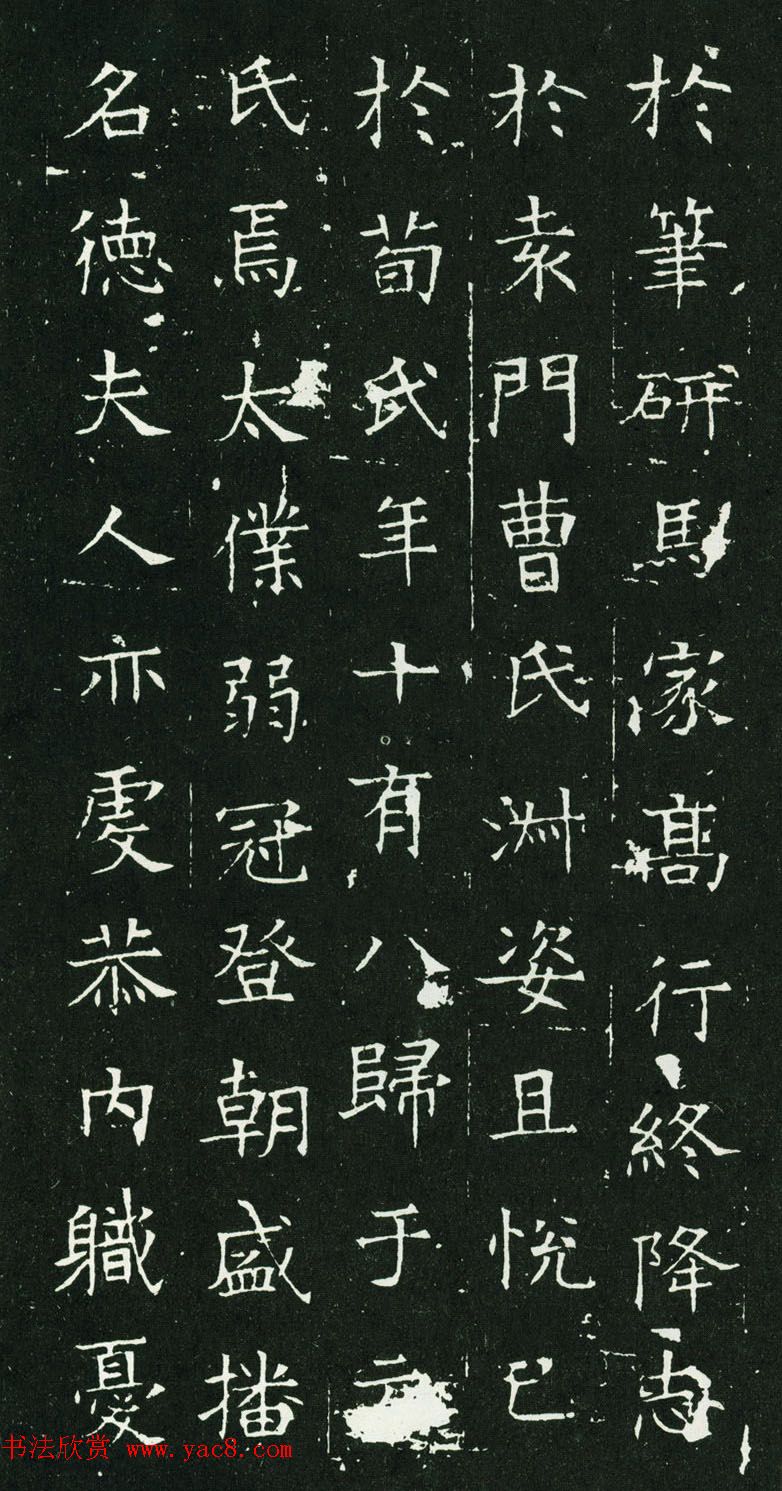 於筆硏馬家高行終降志
於袁門曹氏淋姿且悅已
於荀氏年十有八歸于元
氏焉太僕弱冠登朝盛播
名德夫人亦虔恭內職憂
书法欣赏 www.yac8.com